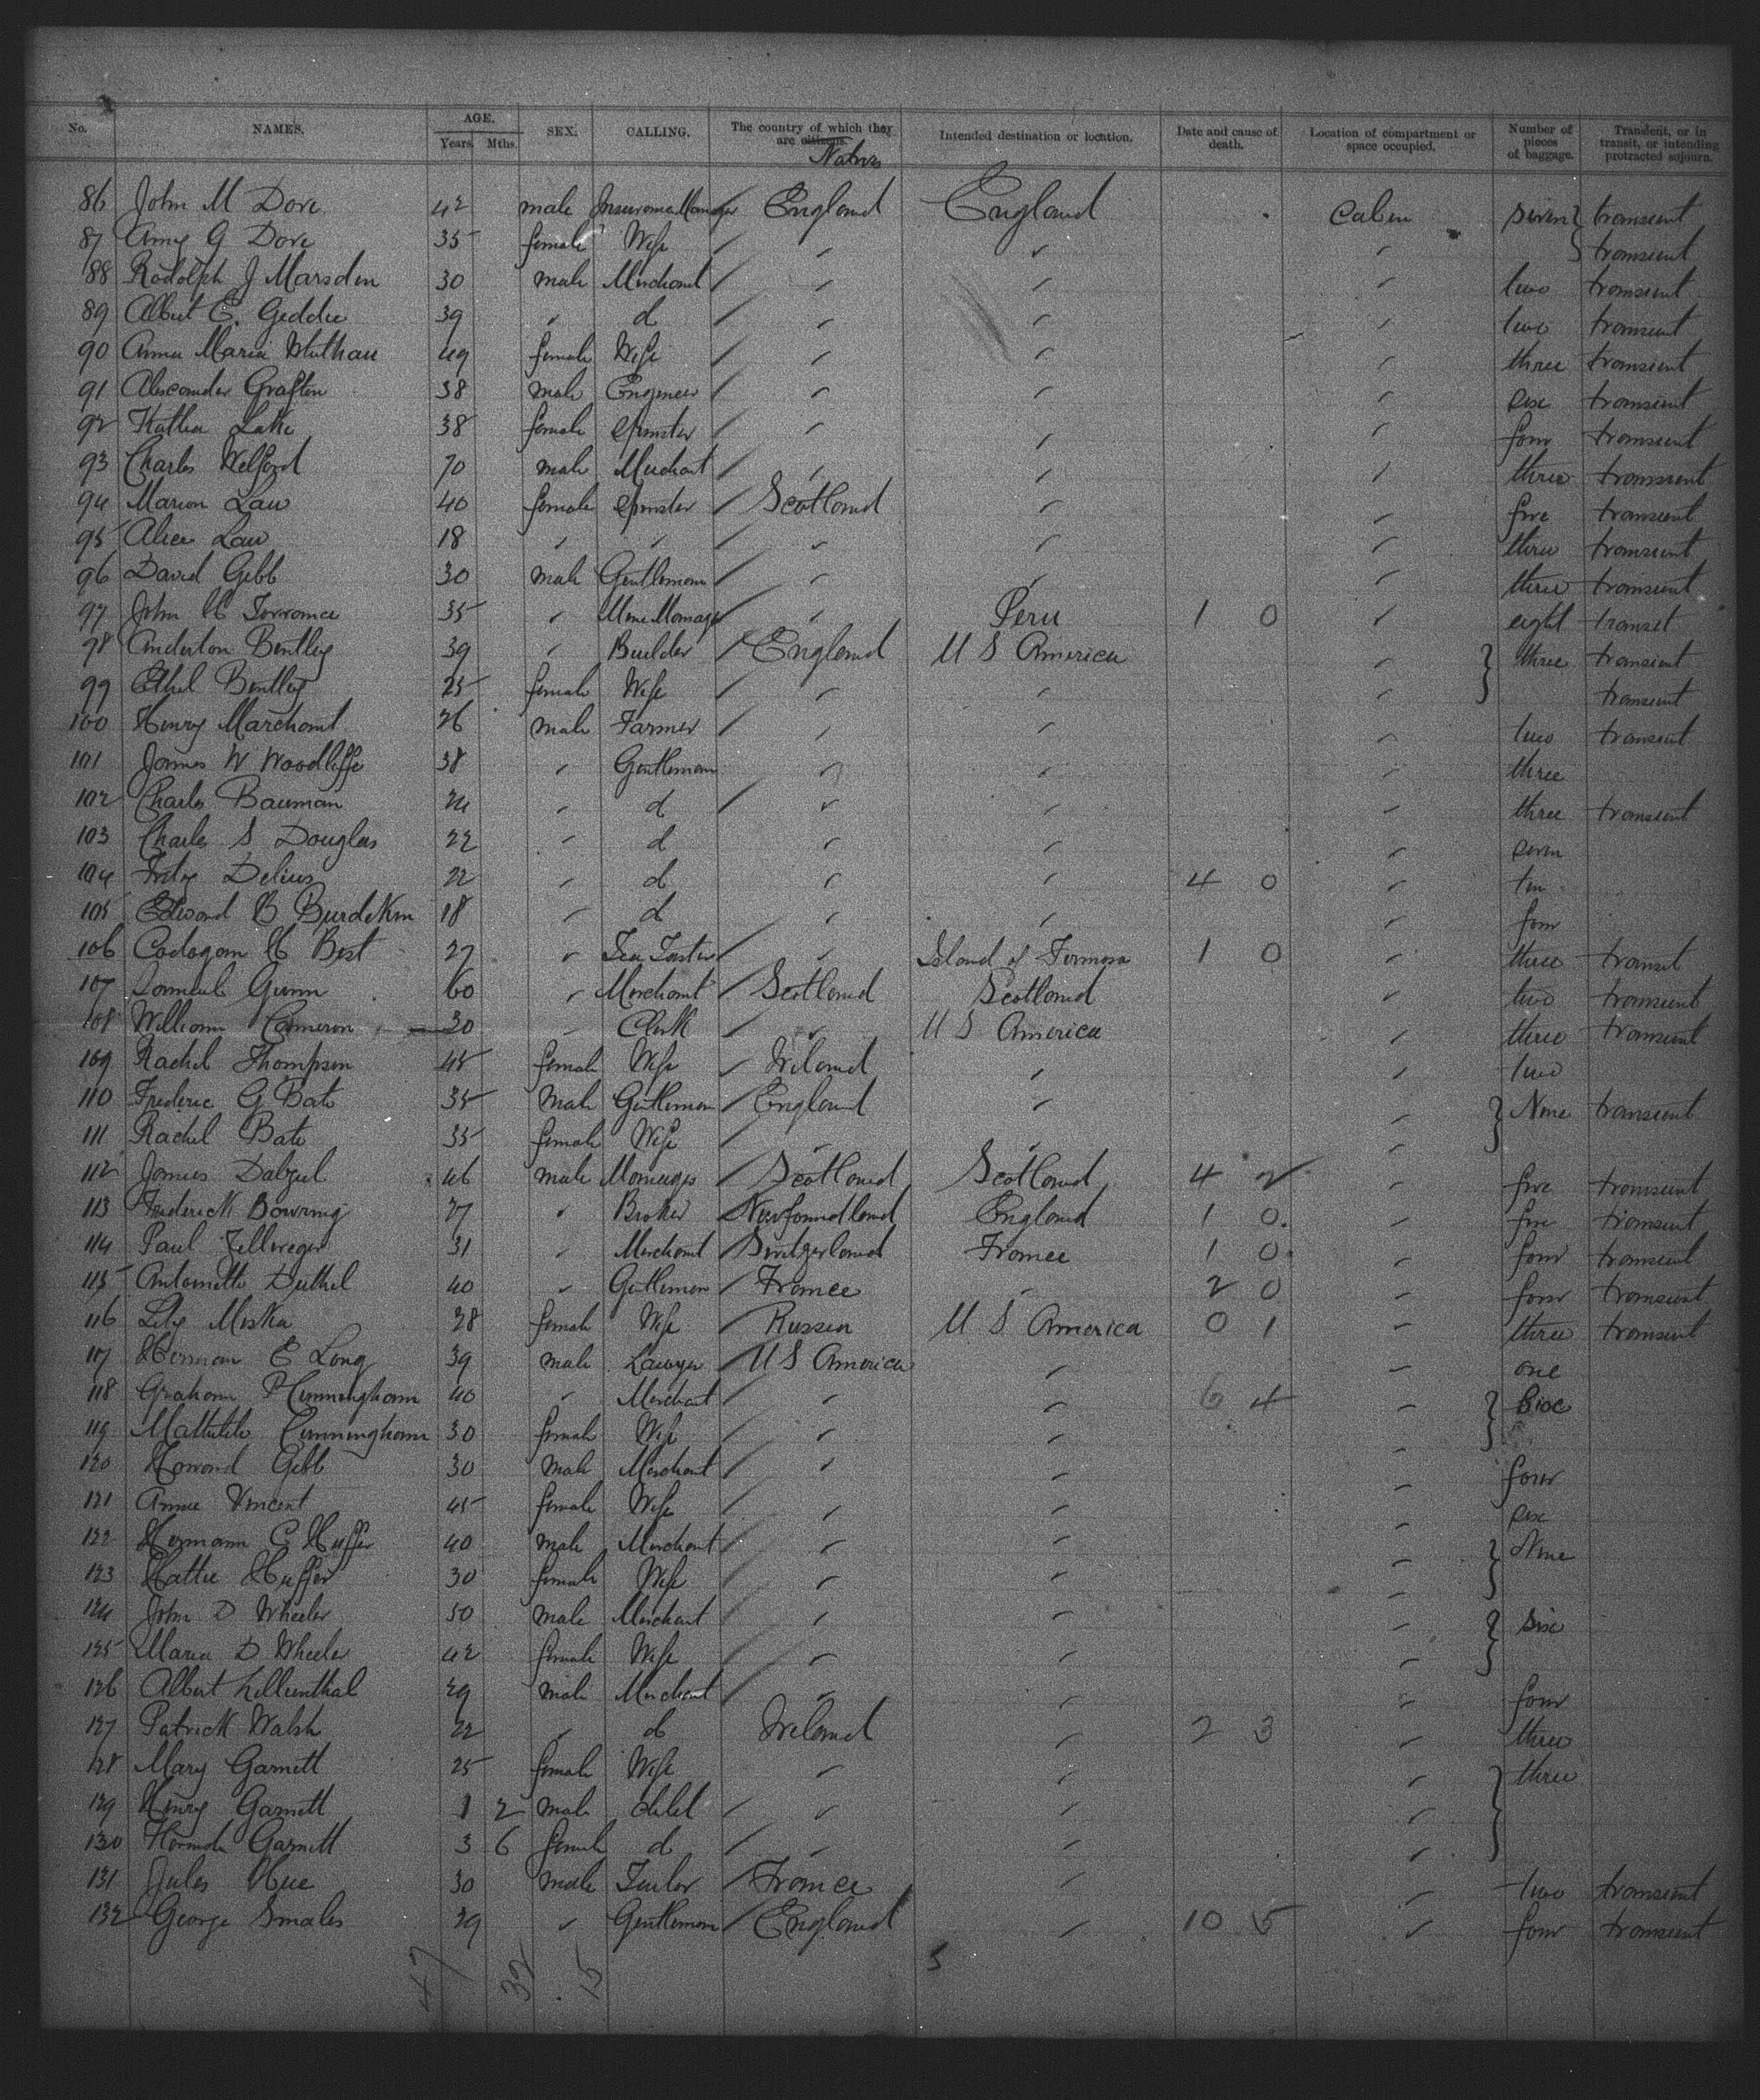 No. NAMES. AGE. Years. Mths. SEX. CALLING. The country of which they are citizens. Natives Intended destination or location. Date and cause of death. Location of compartment or space occupied. Number of pieces of baggage. Transient, or in transit, or intending protracted sojourn.
86 John M Dore 42 male Insurance Manager England England Cabin seven transient
87 Amy G Dore 35 female Wife " " " transient
88 Rodolph J Marsden 30 male Merchant " " " two transient
89 Albert E. Geddes 39 " d " " " two transient
90 Anna Maria 49 female Wife " " " three transient
91 Alexander Grafton 38 male Engineer " " " six transient
92 Lake 38 female Spinster " " " four transient
93 Charles Welford 70 male Merchant " " " three transient
94 Marion Law 40 female Spinster Scotland " " five transient
95 Alice Law 18 " " " " " three transient
96 David Gibb 30 male Gentleman " " " three transient
97 John H Torrance 35 " Mine Manager " Peru 1 0 " eight transit
98 Anderton Bentley 39 " Builder England U S America " three transient
99 Ethel Bentley 25 female Wife " " " transient
100 Henry Marchant 26 male Farmer " " " two transient
101 James W Woodliffe 38 " Gentleman " " " three
102 Charles Bauman 24 " d " " " three transient
103 Charles S Douglas 22 " d " " " seven
104 Fritz Delius 22 " d " " 4 0 " ten
105 Edward B Burdekin 18 " d " " " four
106 Cadogan H Best 27 " Tea Taster " Island of Formosa 1 0 " three transit
107 Gunn 60 " Merchant Scotland Scotland " two transient
108 William Cameron 30 " Clerk " U S America " three transient
109 Rachel Thompson 45 female Wife Ireland " " two
110 Frederic G Bate 35 Male Gentleman England " " Nine transient
111 Rachel Bate 35 female Wife " " "
112 James Dalziel 46 male Manager Scotland Scotland 4 2 " five transient
113 Frederick Bowring 27 " Broker Newfoundland England 1 0. " five transient
114 Paul Zellweger 31 " Merchant Switzerland France 1 0 " four transient
115 Antoinette Duthel 40 " Gentleman France " 2 0 " four transient
116 Lily Miska 28 female Wife Russia U S America 0 1 " three transient
117 Herman E Long 39 male Lawyer U S America " " one
118 Graham P Cunningham 40 " Merchant " " 6 4 "
119 Cunningham 30 female Wife " " "
120 Howard Gibb 30 male Merchant " " " four
121 Annie Vincent 45 female Wife " " " six
122 Hermann C Huffer 40 male Merchant " " " Nine
123 Hattie Huffer 30 female Wife " " "
124 John D Wheeler 50 male Merchant " " " six
125 Maria D Wheeler 42 female Wife " " "
126 Albert Lilienthal 29 male Merchant " " " four
127 Patrick Walsh 22 " d Ireland " 2 3 " three
128 Mary Garnett 25 female Wife " " " three
129 Henry Garnett 1 2 male child " " "
130 Garnett 3 6 female d " " "
131 Jules Hue 30 male Tailor France " " two transient
132 George Smales 29 " Gentleman England " 10 5 " four transient
47 32 15 5